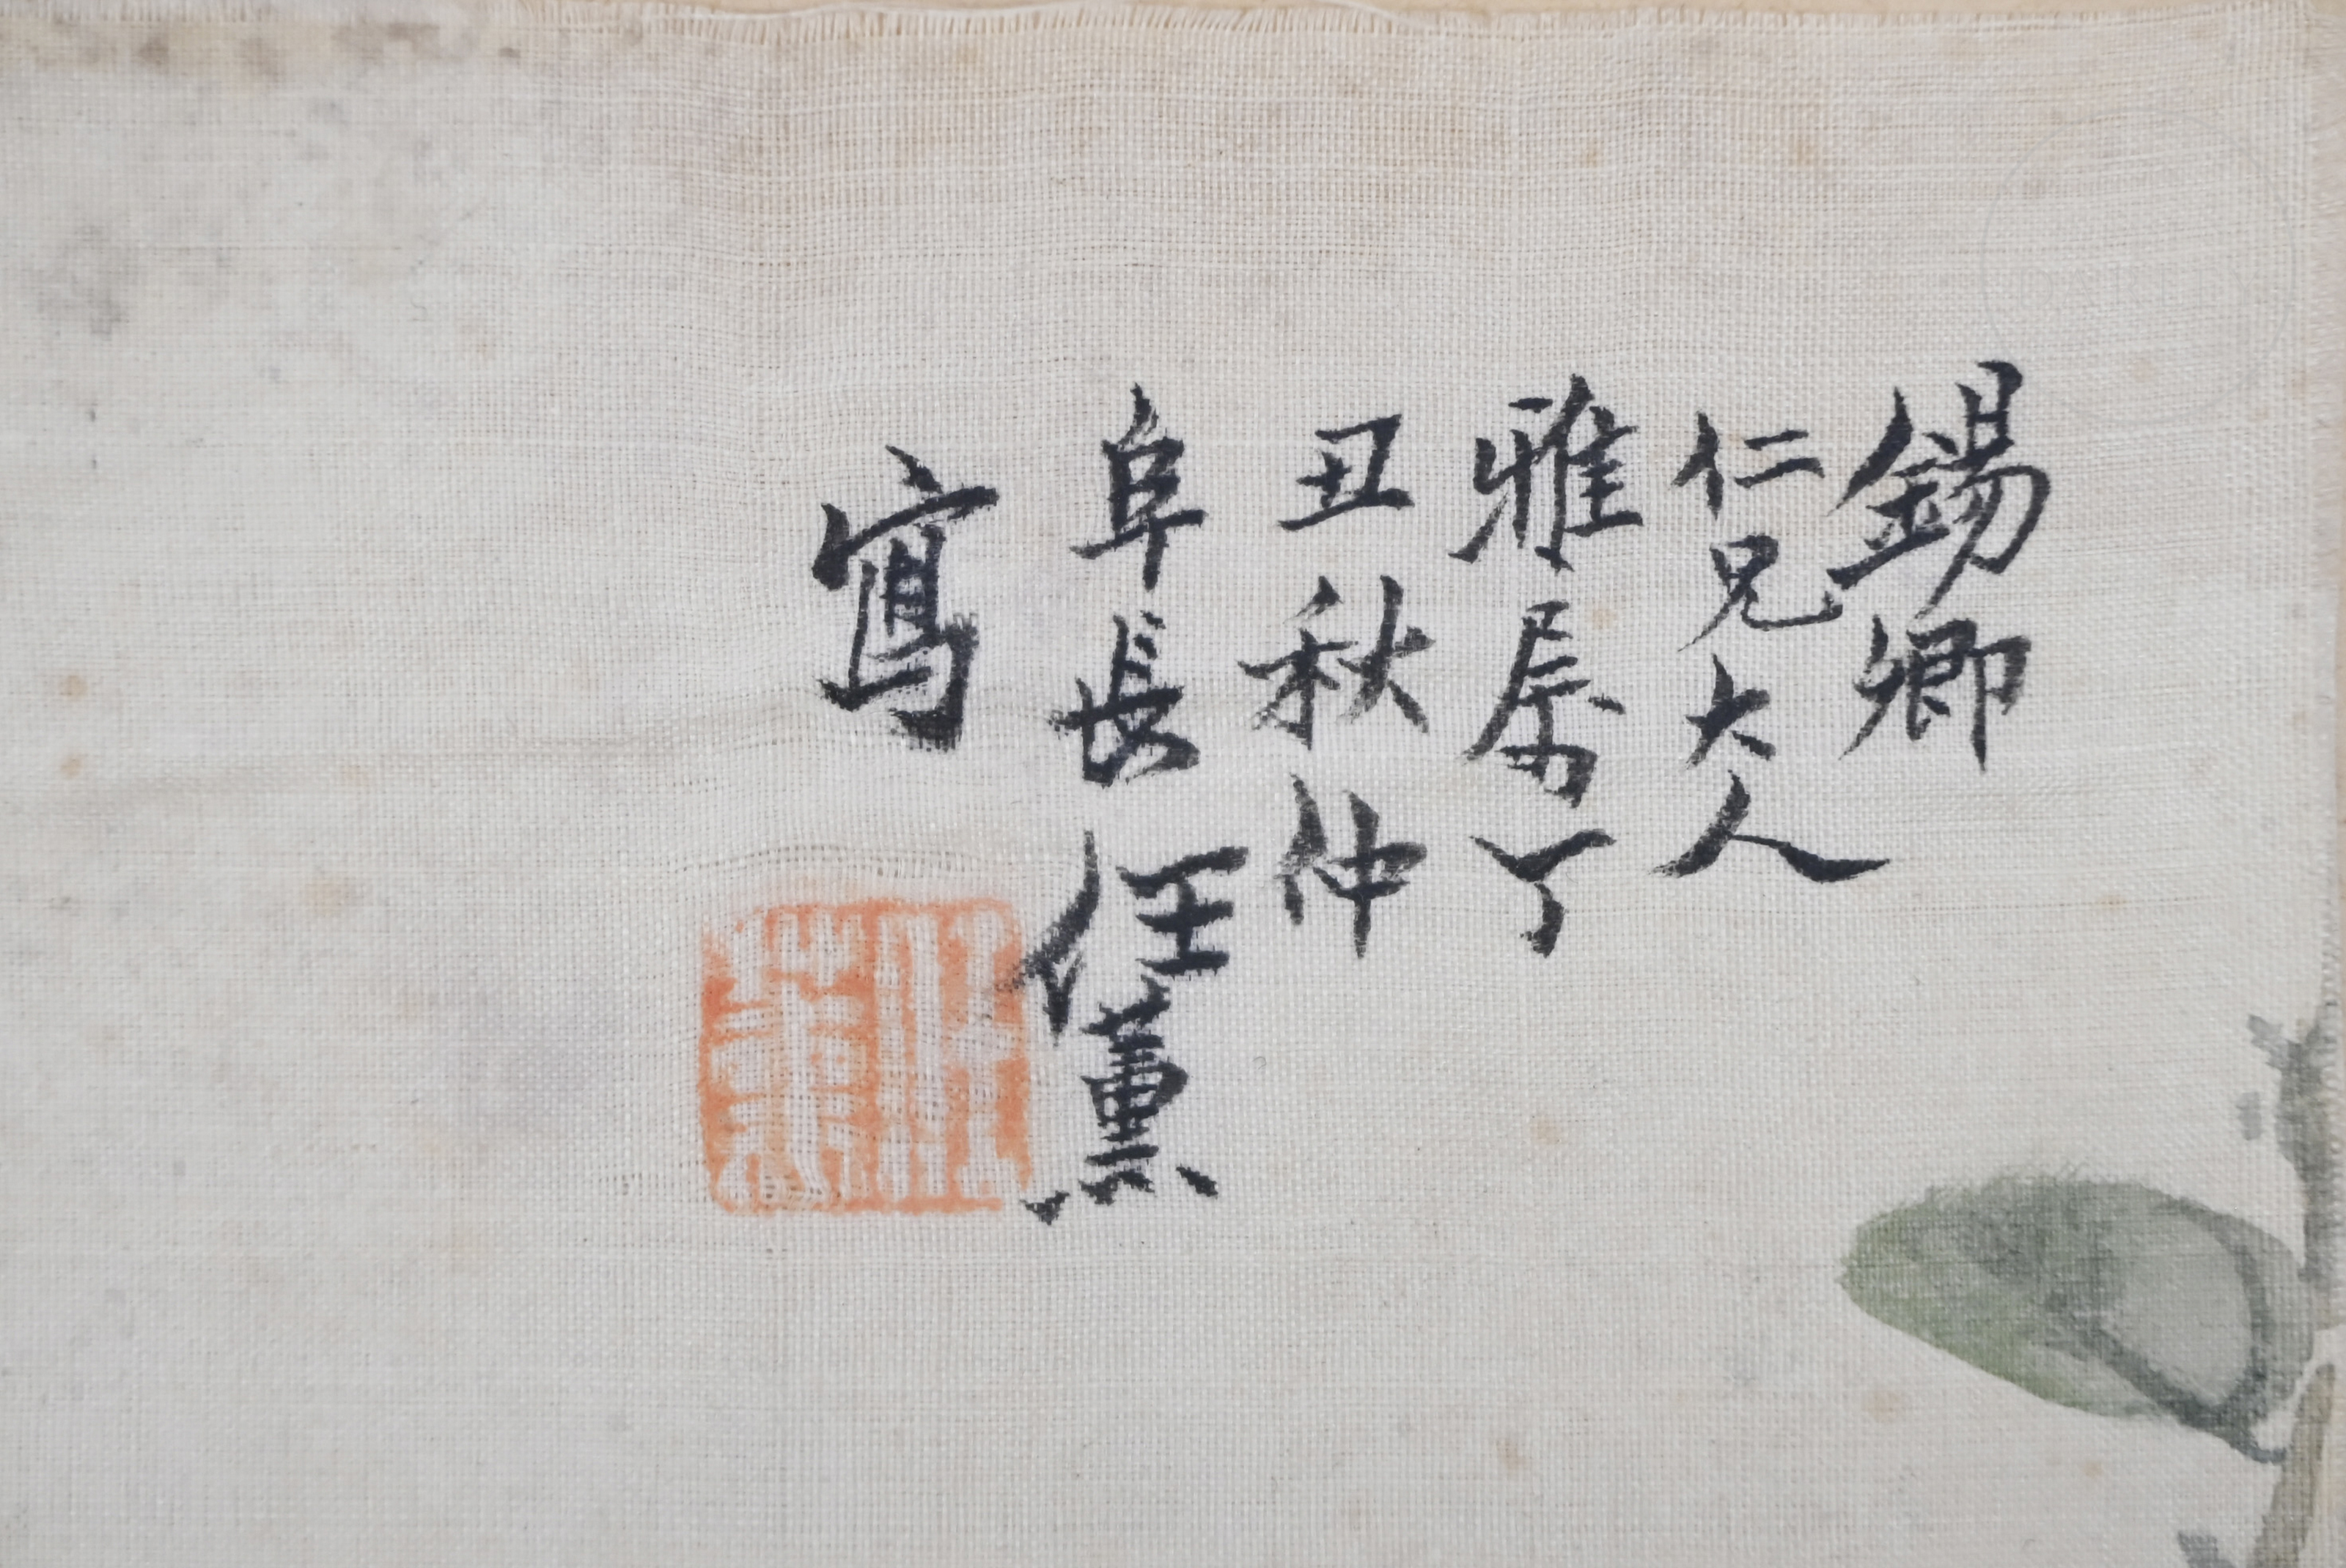 錫卿
仁兄大人
雅屬丁
丑秋仲
阜長任薰
寫